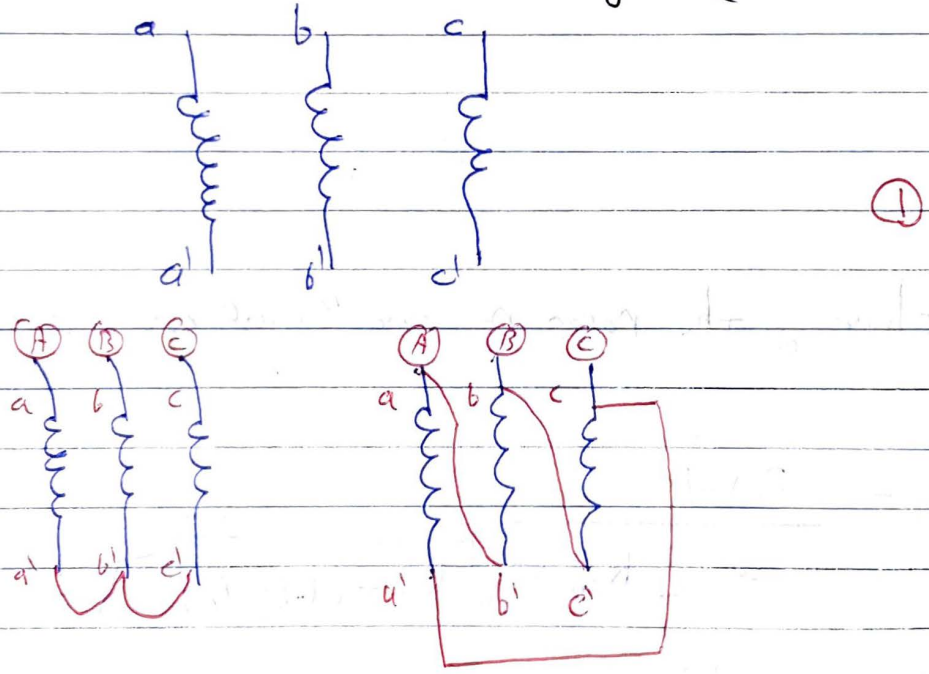 a b c
a' b' c'
1
A B C A B C
a b c a b c
a' b' c' a' b' c'